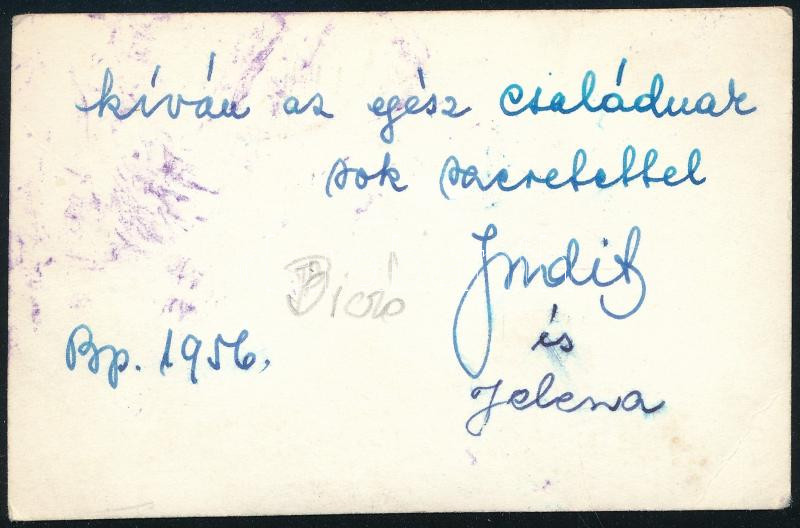 kíván az egész családnak
sok szeretettel
Judit
Biró
és
Bp. 1956.
Jelena